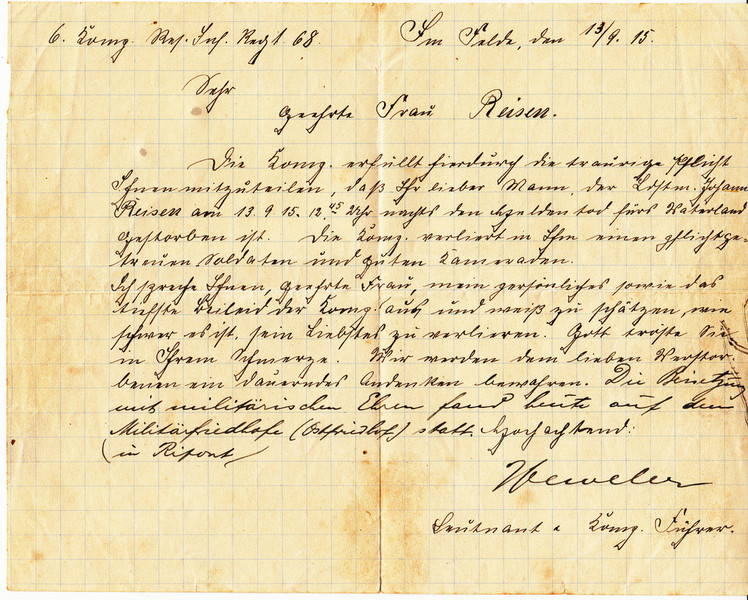 6. Komp. Res. Inf. Regt 68. Im Felde, den 13/9. 15.
Sehr
geehrte Frau Reisen.
Die Komp. erfüllt hierdurch die traurige Pflicht
Ihnen mitzuteilen, daß Ihr lieber Mann, der Ldstm. Johann
Reisen am 13. 9. 15. 12.45 Uhr nachts den Heldentod fürs Vaterland
gestorben ist. Die Komp. verliert in Ihm einen pflichtge-
treuen Soldaten und guten Kameraden.
Ich spreche Ihnen, geehrte Frau, mein persönliches sowie das
tiefste Beileid der Komp. aus und weiß zu schätzen, wie
schwer es ist, sein Liebstes zu verlieren. Gott tröste Sie
in Ihrem Schmerze. Wir werden dem lieben Verstor-
benen ein dauerndes Andenken bewahren. Die Beisetzung
mit militärischen Ehren fand heute auf dem
Militärfriedhofe (Ostfriedhof) statt. Hochachtend:
(in Ripont)
Leutnant u. Komp. Führer.